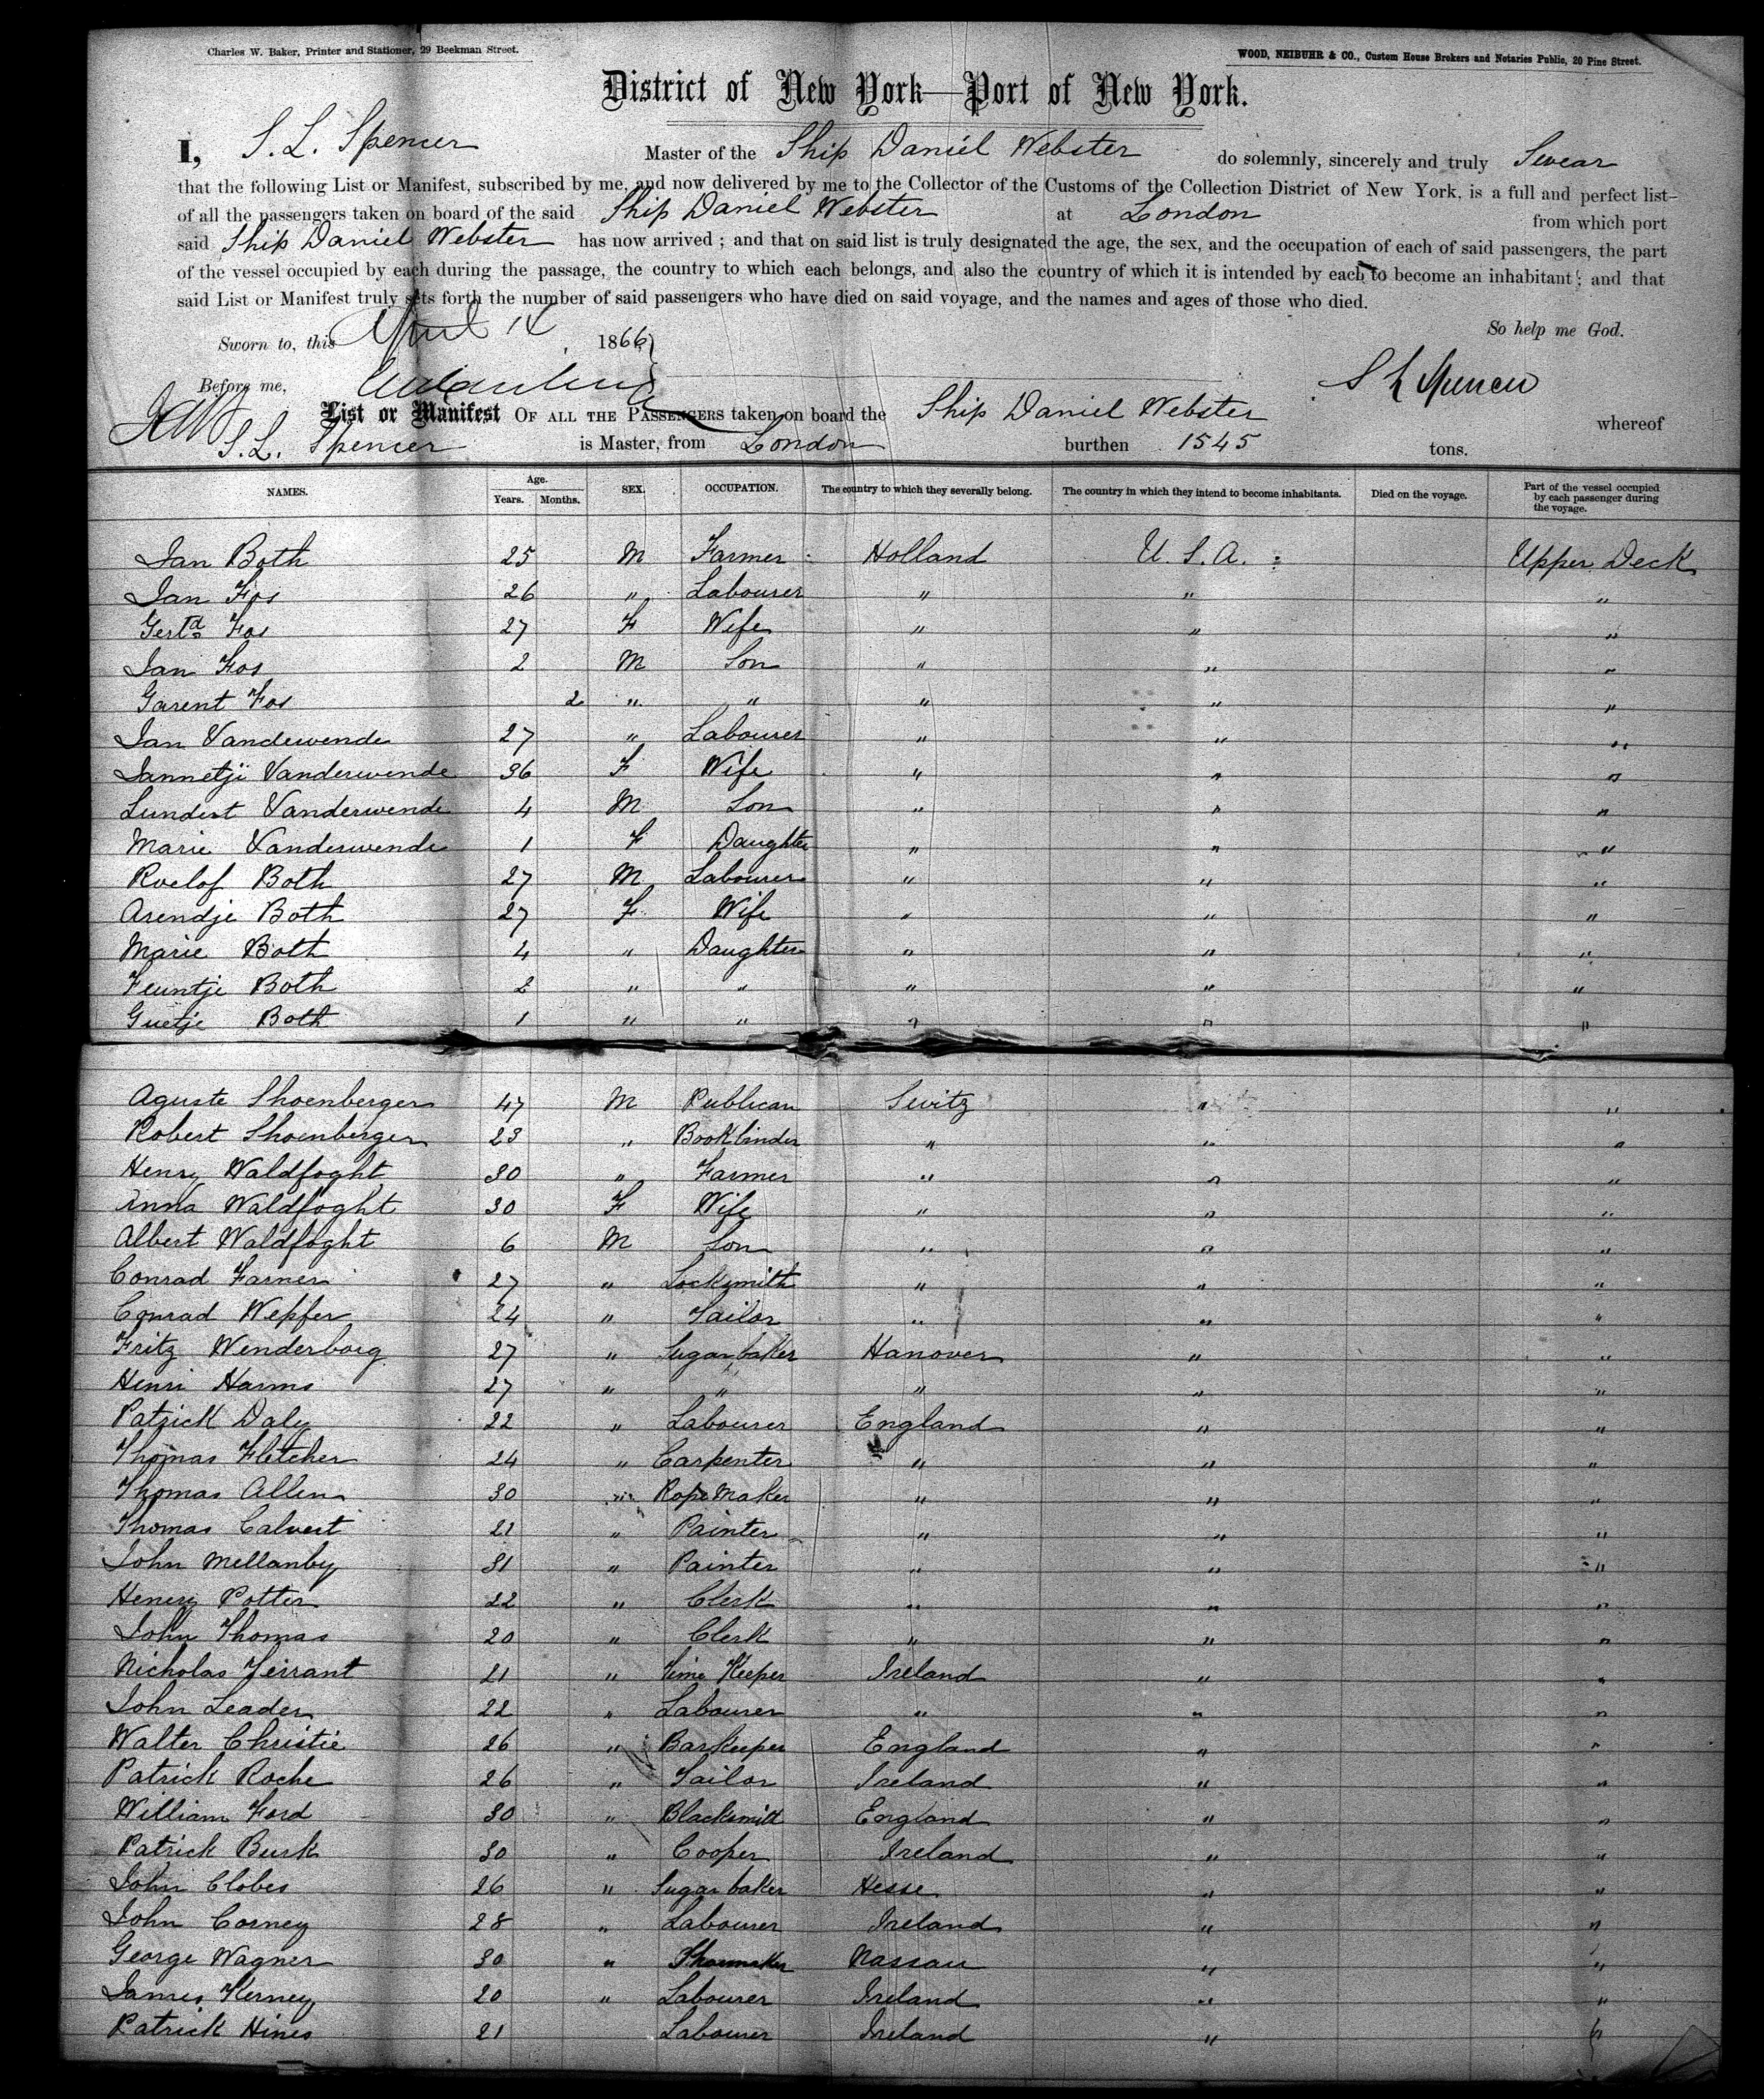 Charles W. Baker, Printer and Stationer, 29 Beekman Street.
WOOD, NEIBUHR & CO., Custom House Brokers and Notaries Public, 20 Pine Street.
District of New York—Port of New York.
I, S. L. Spencer Master of the Ship Daniel Webster do solemnly, sincerely and truly Swear
that the following List or Manifest, subscribed by me, and now delivered by me to the Collector of the Customs of the Collection District of New York, is a full and perfect list
of all the passengers taken on board of the said Ship Daniel Webster at London from which port
said Ship Daniel Webster has now arrived ; and that on said list is truly designated the age, the sex, and the occupation of each of said passengers, the part
of the vessel occupied by each during the passage, the country to which each belongs, and also the country of which it is intended by each to become an inhabitant ; and that
said List or Manifest truly sets forth the number of said passengers who have died on said voyage, and the names and ages of those who died.
So help me God.
Sworn to, this April 14 1866
Before me,
S L Spencer
List or Manifest OF ALL THE PASSENGERS taken on board the Ship Daniel Webster whereof
S. L. Spencer is Master, from London burthen 1545 tons.
NAMES. Age. Years. Months. SEX. OCCUPATION. The country to which they severally belong. The country in which they intend to become inhabitants. Died on the voyage. Part of the vessel occupied by each passenger during the voyage.
Jan Both 25 M Farmer Holland U. S. A. Upper Deck
Jan Fos 26 " Labourer " " "
Gertd Fos 27 F Wife " " "
Jan Fos 2 M Son " " "
Garent Fos 2 " " " " "
Jan Vandewende 27 " Labourer " " "
Jannetji Vanderwende 36 F Wife " " "
Lundert Vanderwende 4 M Son " " "
Marie Vanderwende 1 F Daughter " " "
Roelof Both 27 M Labourer " " "
Arendje Both 27 F Wife " " "
Marie Both 4 " Daughter " " "
Feuntje Both 2 " " " " "
Guetje Both 1 " " " " "
Aguste Shoenberger 47 M Publican Switz " "
Robert Shoenberger 23 " Bookbinder " " "
Henry Waldfoght 30 " Farmer " " "
Anna Waldfoght 30 F Wife " " "
Albert Waldfoght 6 M Son " " "
Conrad Farner 27 " Locksmith " " "
Conrad Wepfer 24 " Tailor " " "
Fritz Wenderborg 27 " Sugar baker Hanover " "
Henri Harms 27 " " " " "
Patrick Daly 22 " Labourer England " "
Thomas Fletcher 24 " Carpenter " " "
Thomas Allen 30 " Rope Maker " " "
Thomas Calvert 21 " Painter " " "
John Mellanby 31 " Painter " " "
Henery Potter 22 " Clerk " " "
John Thomas 20 " Clerk " " "
Nicholas Terrant 21 " Time Keeper Ireland " "
John Leader 22 " Labourer " " "
Walter Christie 26 " Barkeeper England " "
Patrick Roche 26 " Tailor Ireland " "
William Ford 30 " Blacksmith England " "
Patrick Burk 30 " Cooper Ireland " "
John Clobes 26 " Sugar baker Hesse " "
John Corney 28 " Labourer Ireland " "
George Wagner 30 " Shoemaker Nassau " "
James Kerney 20 " Labourer Ireland " "
Patrick Hines 21 Labourer Ireland " "